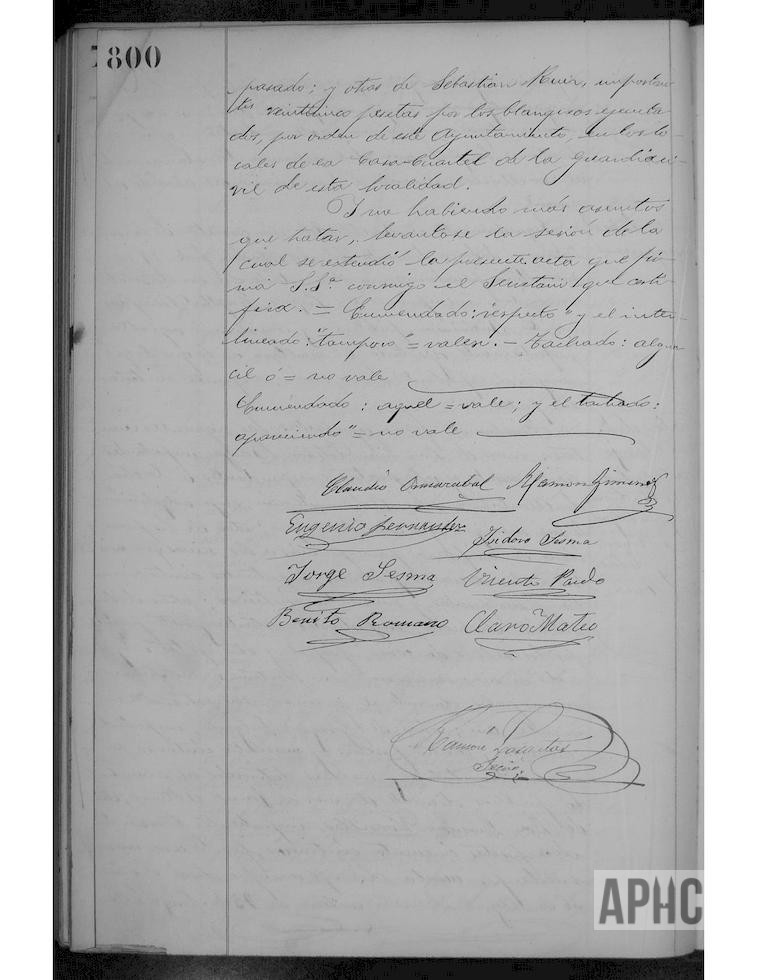 800
pasado; y otras de Sebastián Ruiz, importan-
tes veinticinco pesetas por los blanqueos ejecuta-
dos, por orden de este Ayuntamiento, en los lo-
cales de la Casa-Cuartel de la Guardia ci-
vil de esta localidad.
Y no habiendo más asuntos
que tratar, levantose la sesión de la
cual se extendió la presente acta que fir-
ma S.Sª conmigo el Secretario que certi-
fica. = Enmendado: "respecto" y el inter-
lineado: "tampoco" = valen. - Tachado: algua-
cil ó = no vale
Enmendado: aquel = vale; y el tachado:
apareciendo" = no vale
Claudio Ramón Gimenez
Eugenio Fernandez
Isidoro Sesma
Jorge Sesma Vicente Pardo
Benito Romano Claro Mateo
Ramón
Secrio
APHC